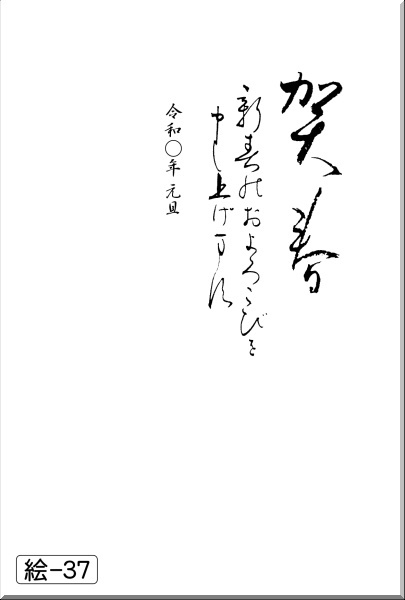 賀春
新春のおよろこびを
申し上げます
令和〇年 元旦
絵-37